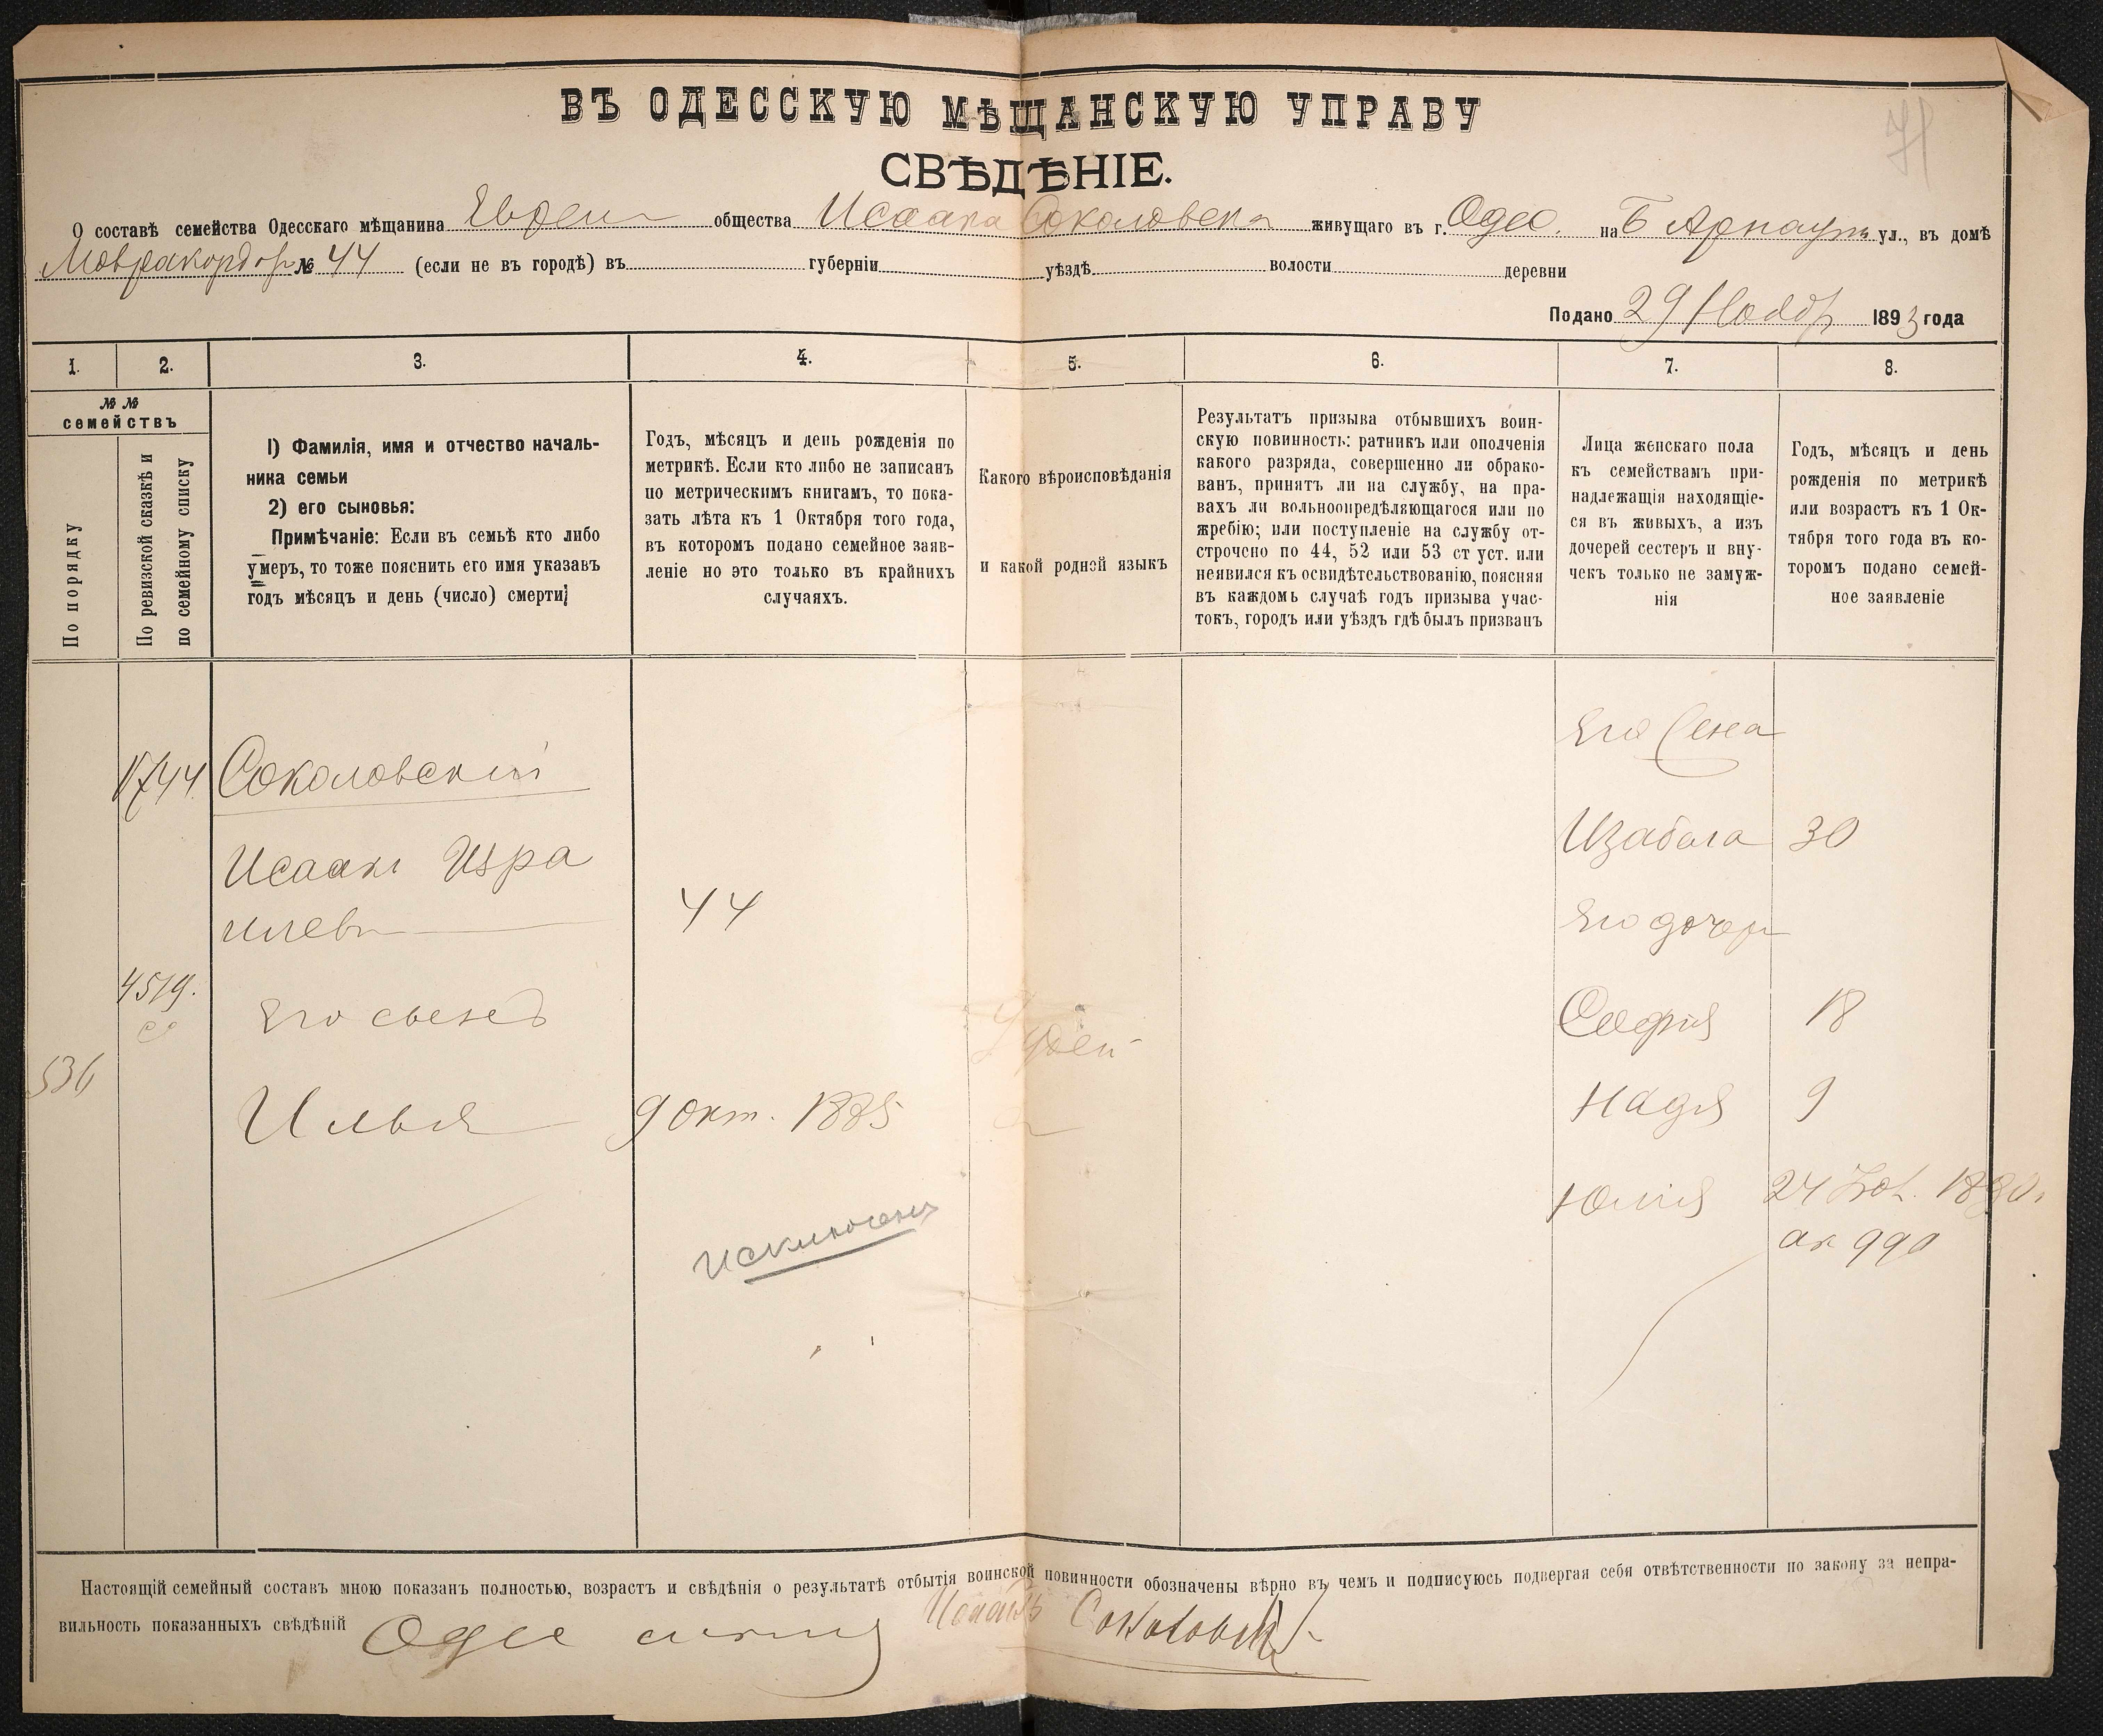 71
ВЪ ОДЕССКУЮ МѢЩАНСКУЮ УПРАВУ
СВѢДѢНІЕ.
О составѣ семейства Одесскаго мѣщанина Евреи общества Исаака Соколовска живущаго въ г. Одес. на Б Арнаут ул., въ домѣ
Мавракордат № 44 (если не въ городѣ) въ губерніи уѣздѣ волости деревни
Подано 29 Ноябр 1893 года
1. 2. 3. 4. 5. 6. 7. 8.
№ №
семействъ
По порядку
По ревизской сказкѣ и
по семейному списку
1) Фамилія, имя и отчество началь-
ника семьи
2) его сыновья:
Примѣчаніе: Если въ семьѣ кто либо
умеръ, то тоже пояснить его имя указавъ
годъ мѣсяцъ и день (число) смерти;
Годъ, мѣсяцъ и день рожденія по
метрикѣ. Если кто либо не записанъ
по метрическимъ книгамъ, то пока-
зать лѣта къ 1 Октября того года,
въ которомъ подано семейное заяв-
леніе но это только въ крайнихъ
случаяхъ.
Какого вѣроисповѣданія
и какой родной языкъ
Результатъ призыва отбывшихъ воин-
скую повинность: ратникъ или ополченія
какого разряда, совершенно ли обрако-
ванъ, принятъ ли на службу, на пра-
вахъ ли вольноопредѣляющагося или по
жребію; или поступленіе на службу от-
строчено по 44, 52 или 53 ст уст. или
неявился къ освидѣтельствованію, поясняя
въ каждомъ случаѣ годъ призыва учас-
токъ, городъ или уѣздъ гдѣ былъ призванъ
Лица женскаго пола
къ семействамъ при-
надлежащія находящіе-
ся въ живыхъ, а изъ
дочерей сестеръ и вну-
чекъ только не замуж-
нія
Годъ, мѣсяцъ и день
рожденія по метрикѣ
или возрастъ къ 1 Ок-
тября того года въ ко-
торомъ подано семей-
ное заявленіе
Его Жена
1744 Соколовскій
Изабела 30
Исаакъ Изра
илевъ 44
Его дочери
4519.
Его сынъ
София 18
536
Илья 9 окт. 1885
Надя 9
Юлія 24 1890.
ак 990
исключенъ
Настоящій семейный составъ мною показанъ полностью, возрастъ и свѣдѣнія о результатѣ отбытія воинской повинности обозначены вѣрно въ чемъ и подписуюсь подвергая себя отвѣтственности по закону за непра-
вильность показанныхъ свѣдѣній Одес Исаакъ Соколовскій